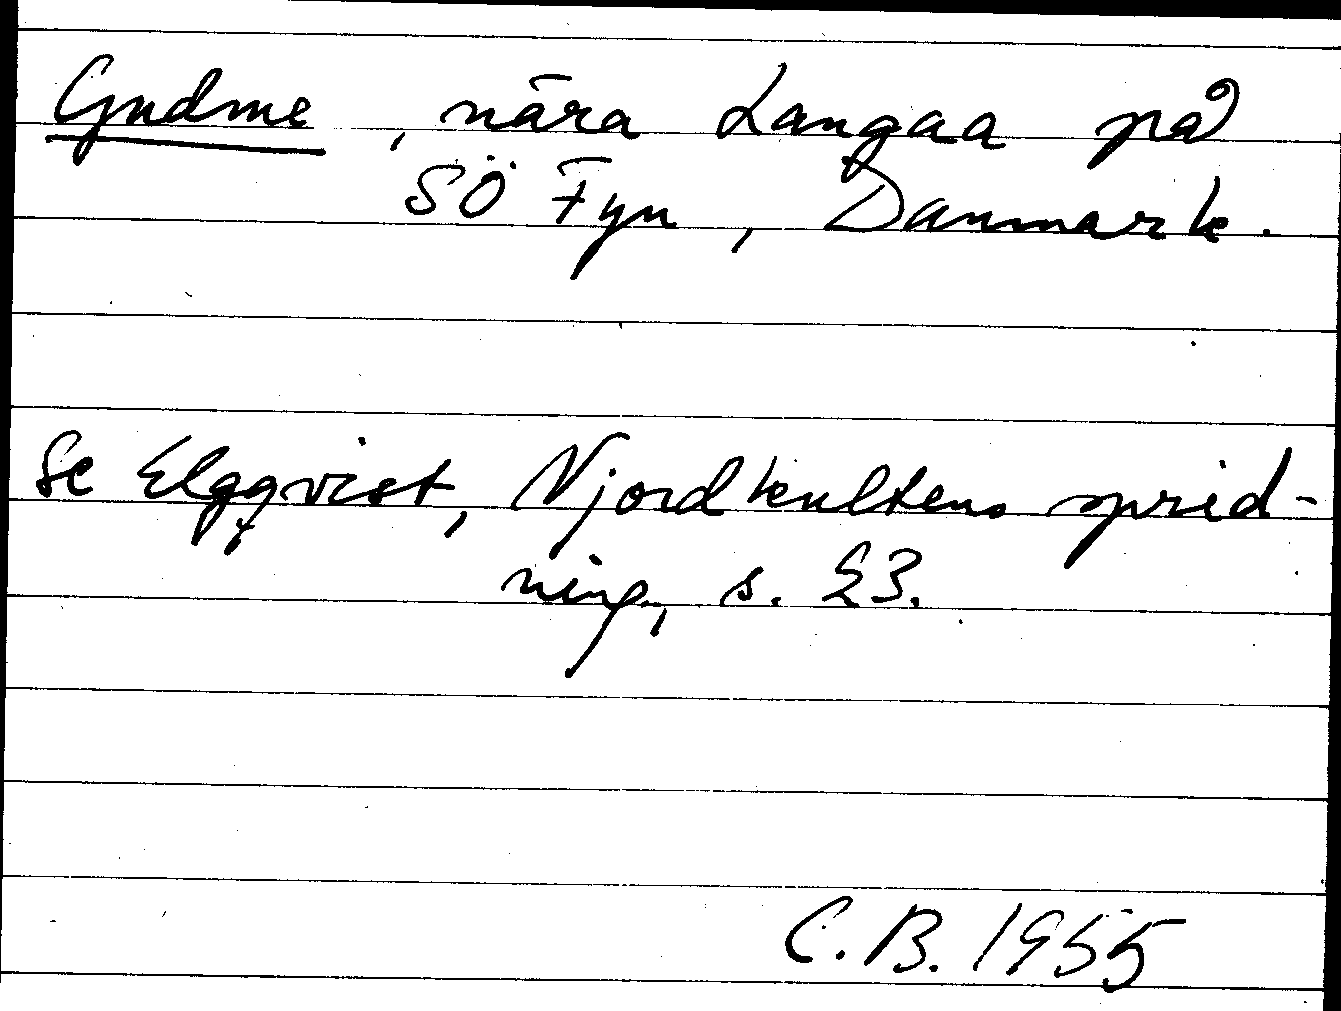 Gudme, nära Langaa på
SÖ Fyn, Danmark.
Se Elgqvist, Njordkultens sprid-
ning, s. 23.
C.B. 1955